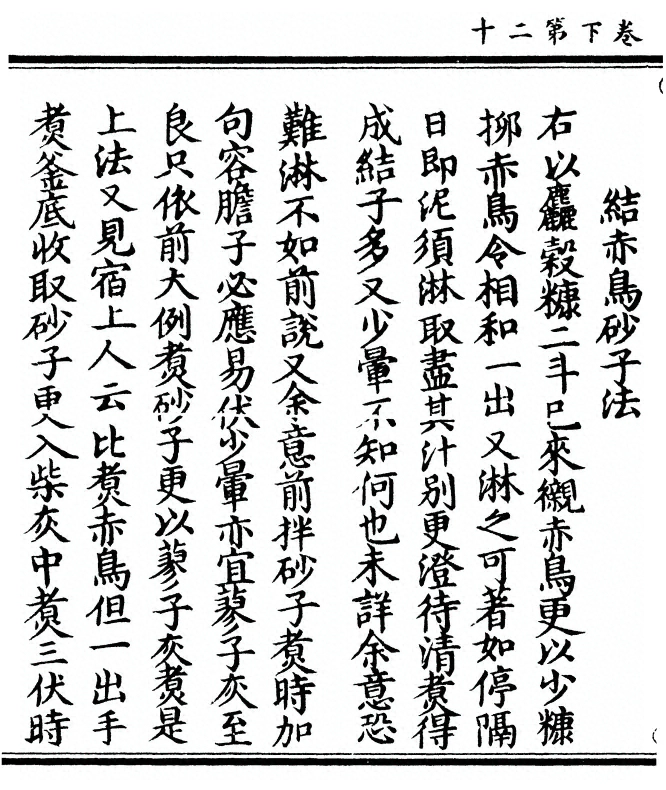 卷下第二十
結赤鳥砂子法
右以麤穀糠二斗已來襯赤鳥更以少糠
抑赤鳥令相和一出又淋之可著如停隔
日即泥須淋取盡其汁別更澄待清煑得
成結子多又少暈不知何也未詳余意恐
難淋不如前說又余意前拌砂子煑時加
句容膽子必應易伏少暈亦宜蔘子灰至
良只依前大例煑砂子更以蔘子灰煑是
上法又見宿上人云比煑赤鳥但一出手
煑釜底收取砂子更入柴灰中煑三伏時